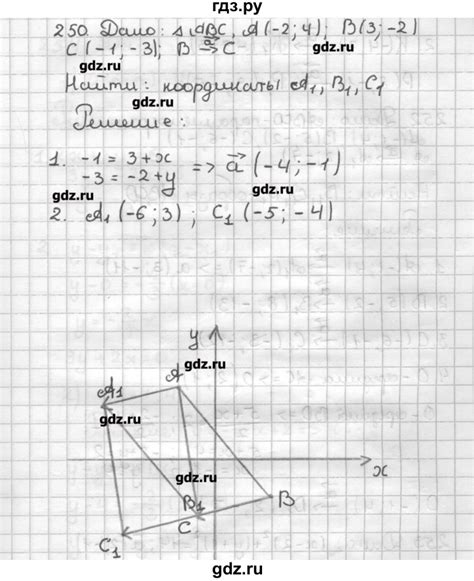 гдз.ру
250. Дано: △ABC, A(-2; 4); B(3; -2)
C(-1; -3); B →a C
gdz.ru gdz.ru
Найти: координаты A₁, B₁, C₁
gdz.ru
Решение:
1. -1 = 3 + x
-3 = -2 + y => a⃗ (-4; -1)
gdz.ru gdz.ru
2. A₁ (-6; 3) ; C₁ (-5; -4)
y
gdz.ru
A
A₁
gdz.ru
gdz.ru
x
B₁
B
C
C₁
gdz.ru gdz.ru
гдз.ру